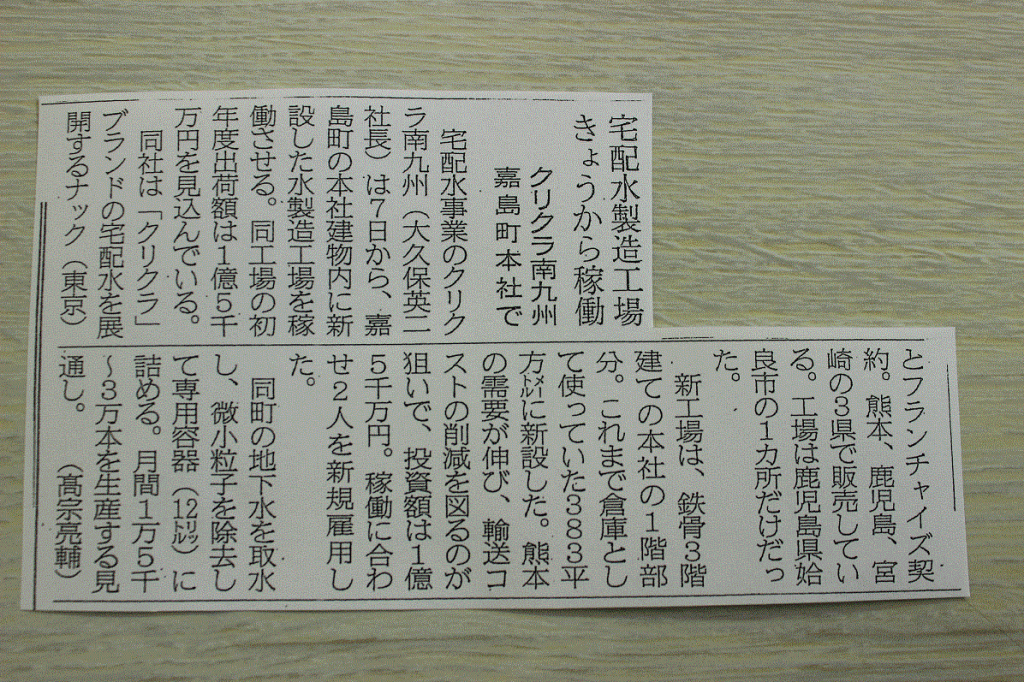 宅配水製造工場
きょうから稼働
クリクラ南九州
嘉島町本社で
宅配水事業のクリク
ラ南九州（大久保英二
社長）は7日から、嘉
島町の本社建物内に新
設した水製造工場を稼
働させる。同工場の初
年度出荷額は1億5千
万円を見込んでいる。
同社は「クリクラ」
ブランドの宅配水を展
開するナック（東京）
とフランチャイズ契
約。熊本、鹿児島、宮
崎の3県で販売してい
る。工場は鹿児島県姶
良市の1カ所だけだっ
た。
新工場は、鉄骨3階
建ての本社の1階部
分。これまで倉庫とし
て使っていた383平
方メートルに新設した。熊本
の需要が伸び、輸送コ
ストの削減を図るのが
狙いで、投資額は1億
5千万円。稼働に合わ
せ2人を新規雇用し
た。
同町の地下水を取水
し、微小粒子を除去し
て専用容器（12リットル）に
詰める。月間1万5千
～3万本を生産する見
通し。（髙宗亮輔）